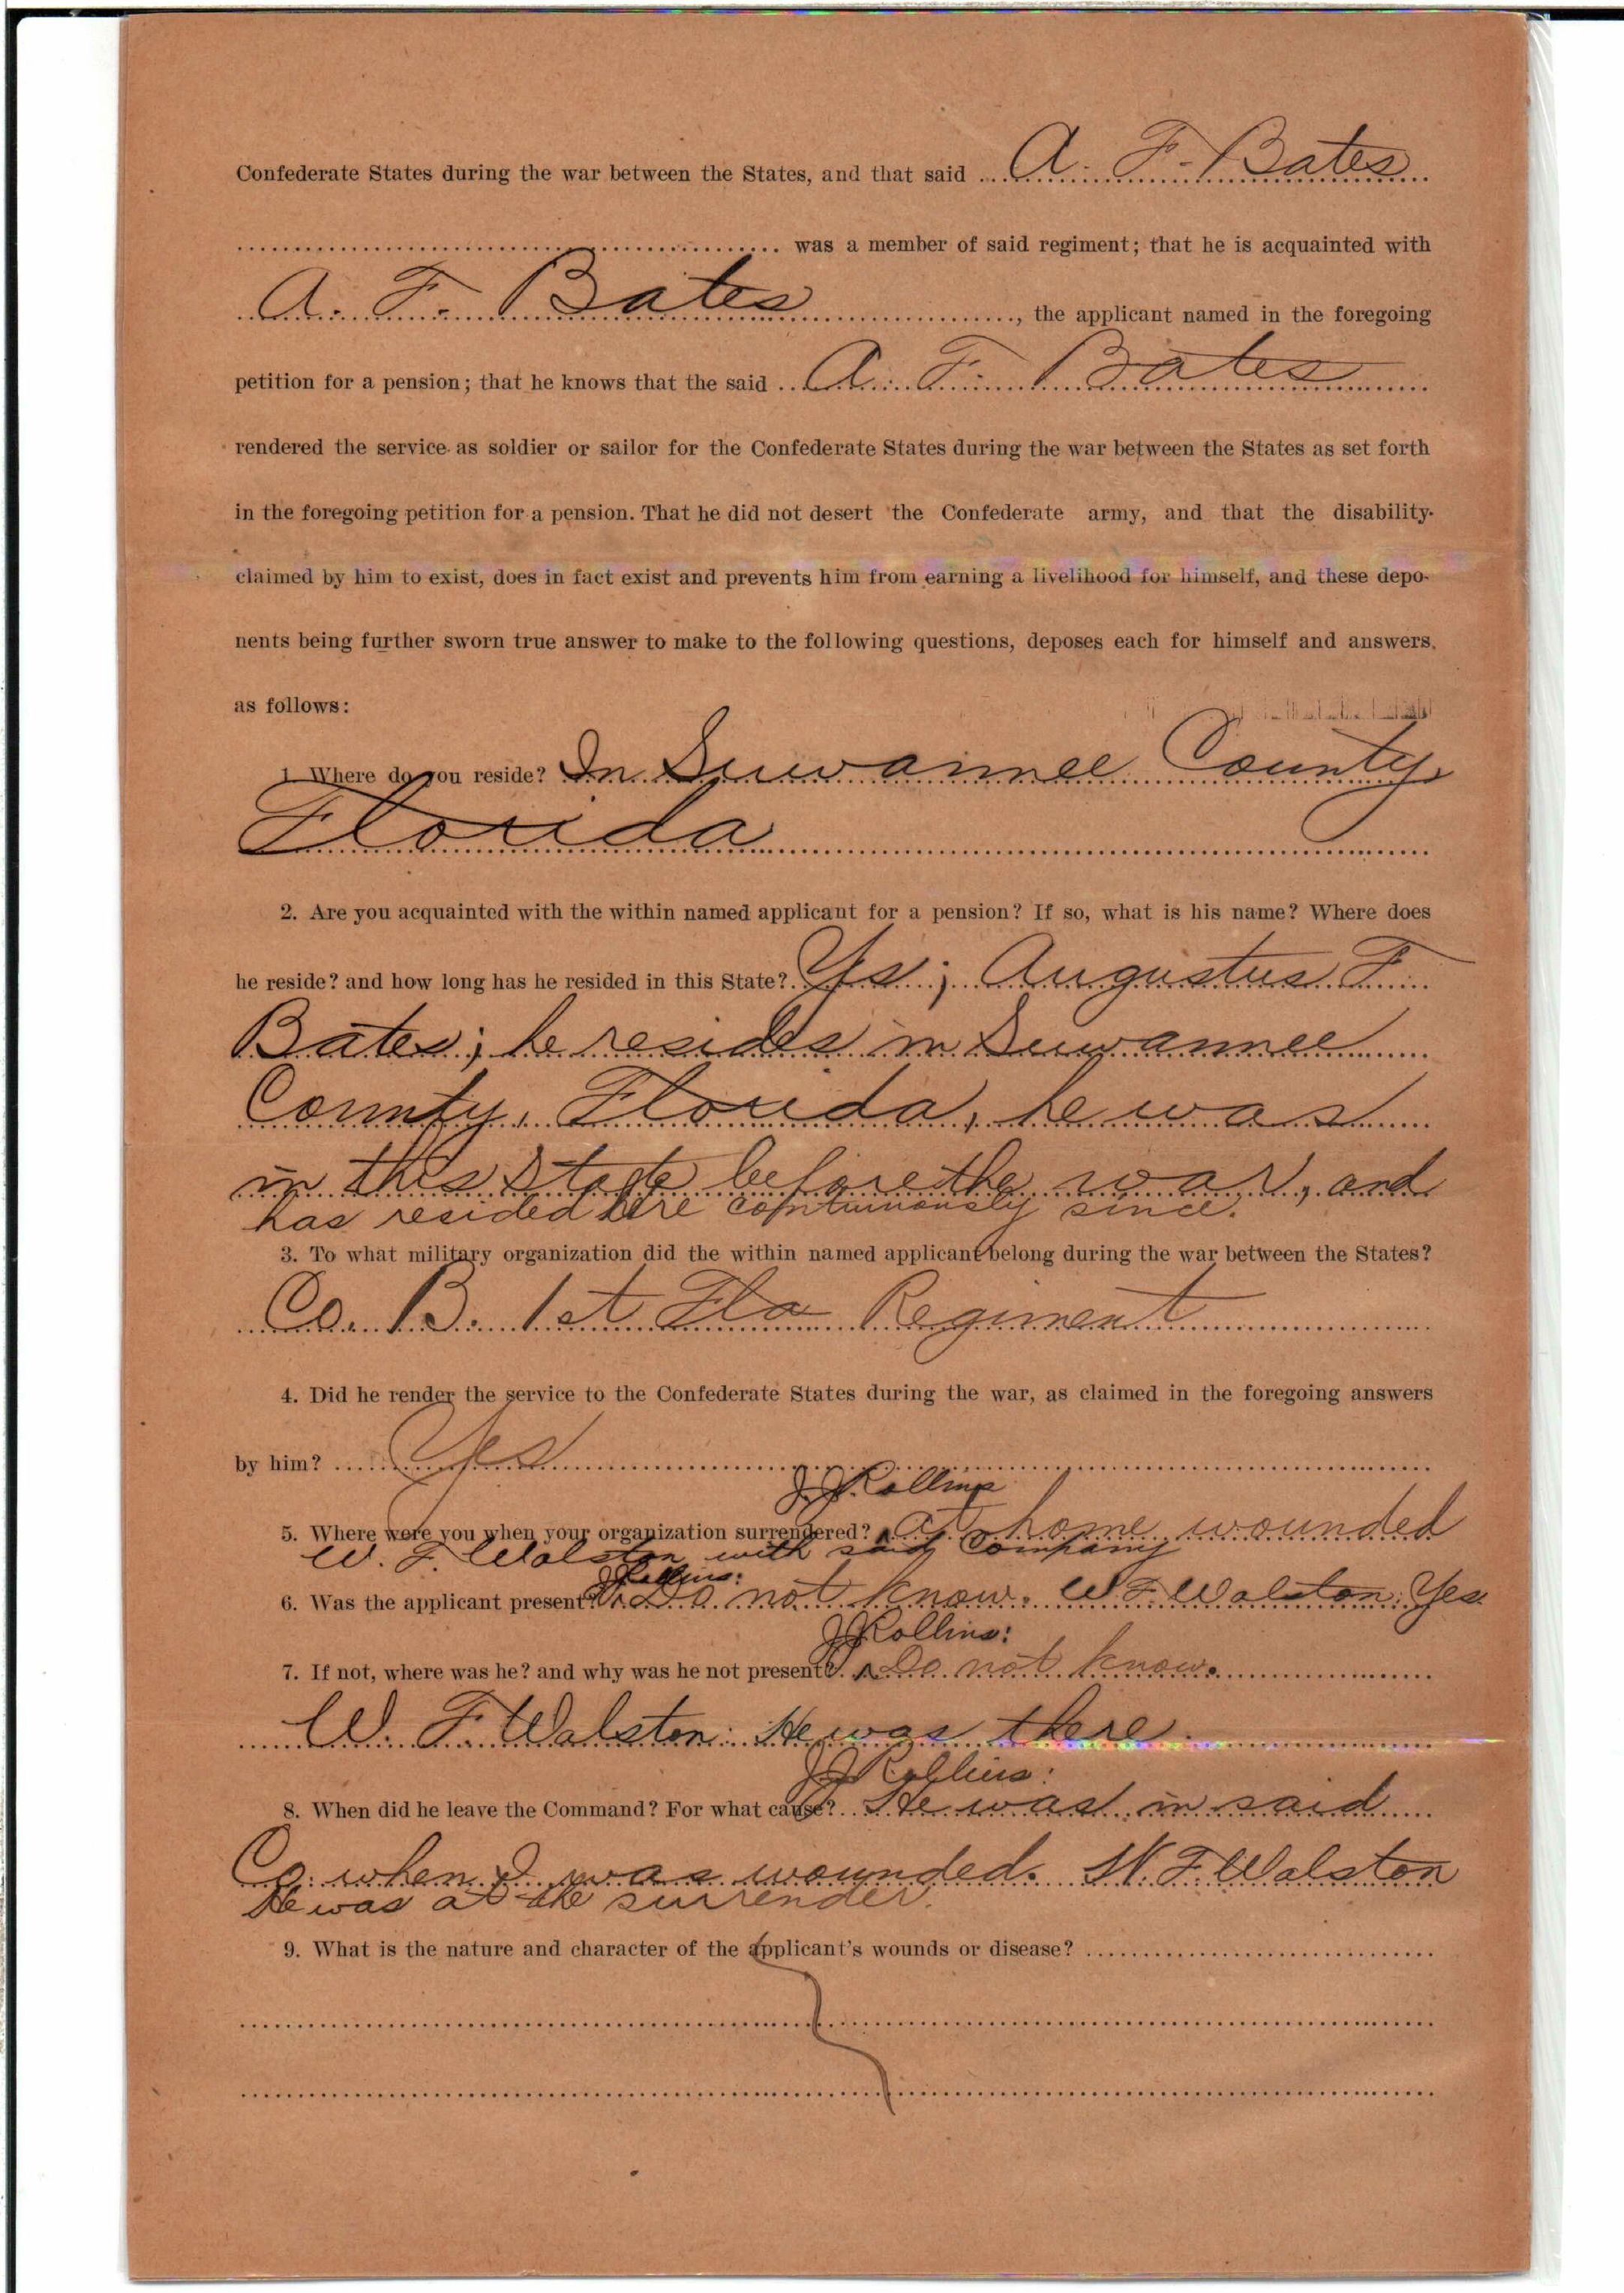 Confederate States during the war between the States, and that said A. F. Bates
was a member of said regiment; that he is acquainted with
A. F. Bates, the applicant named in the foregoing
petition for a pension; that he knows that the said A. F. Bates
rendered the service as soldier or sailor for the Confederate States during the war between the States as set forth
in the foregoing petition for a pension. That he did not desert the Confederate army, and that the disability
claimed by him to exist, does in fact exist and prevents him from earning a livelihood for himself, and these depo-
nents being further sworn true answer to make to the following questions, deposes each for himself and answers,
as follows:
1 Where do you reside? In Suwannee County
Florida
2. Are you acquainted with the within named applicant for a pension? If so, what is his name? Where does
he reside? and how long has he resided in this State? Yes; Augustus F.
Bates; he resides in Suwannee
County, Florida, he was
in this State before the war, and
has resided here continuously since.
3. To what military organization did the within named applicant belong during the war between the States?
Co. B. 1st Fla Regiment
4. Did he render the service to the Confederate States during the war, as claimed in the foregoing answers
by him? Yes
J. J. Rollins
5. Where were you when your organization surrendered? At home wounded
W. F. Walston with said Company
J J Rollins:
6. Was the applicant present? Do not know. W. F. Walston: Yes.
J J Rollins:
7. If not, where was he? and why was he not present? Do not know.
W. F. Walston: He was there
J J Rollins:
8. When did he leave the Command? For what cause? He was in said
Co. when I was wounded. W. F. Walston
He was at the surrender.
9. What is the nature and character of the applicant's wounds or disease?